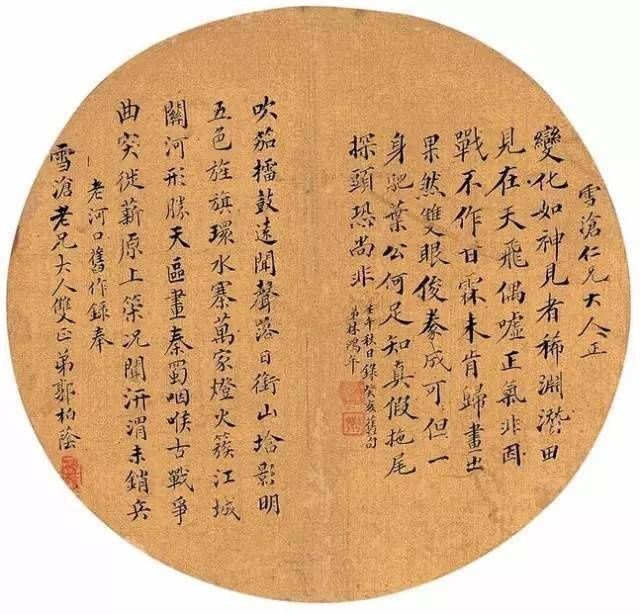 雪滄仁兄大人正
變化如神見者稀淵潛田
見在天飛偶噓正氣非因
戰不作甘霖未肯歸畫出
果然雙眼俊豢成可但一
身肥葉公何足知真假拖尾
探頭恐尚非
壬午秋日錄癸亥舊句
弟林鴻年
吹笳擂鼓遠聞聲落日銜山塔影明
五色旌旗環水寨萬家燈火簇江城
關河形勝天區畫秦蜀咽喉古戰爭
曲突徙薪原上策況聞汧渭未銷兵
老河口舊作錄奉
雪滄老兄大人雙正弟郭柏蔭